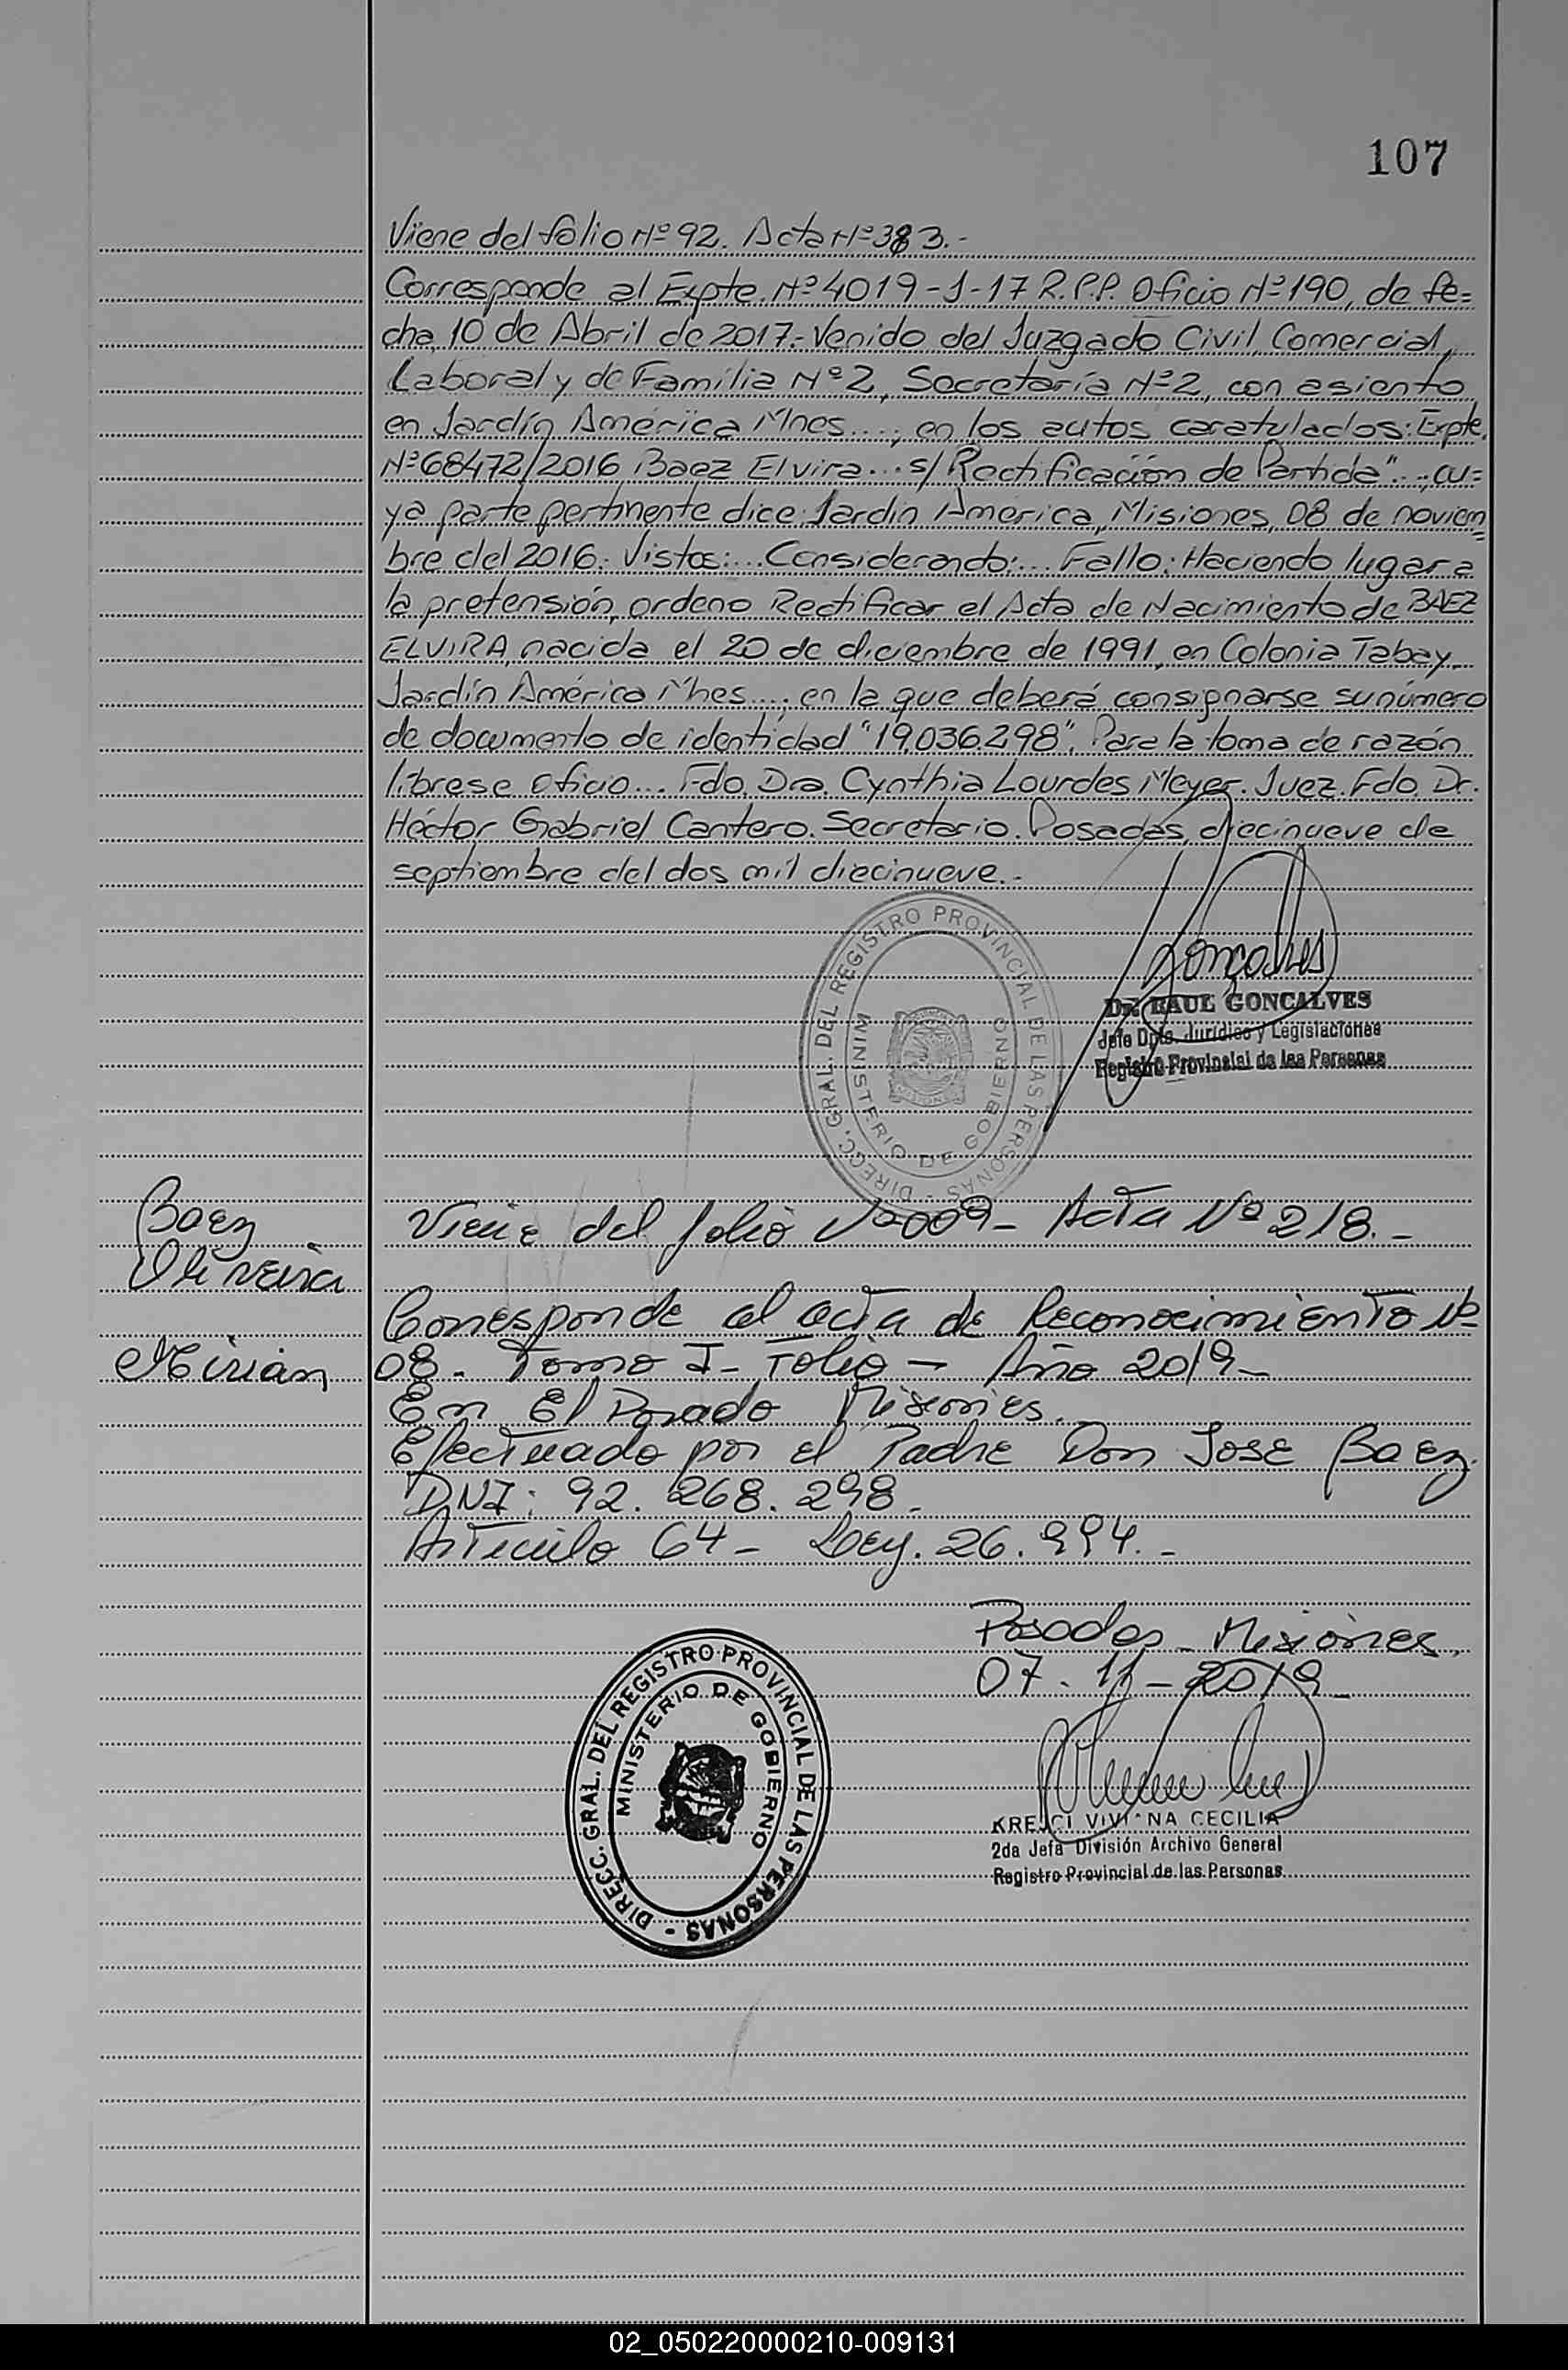 107
Viene del folio Nº 92. Acta Nº 383.-
Corresponde al Expte. Nº 4019-J-17 R.P.P. Oficio Nº 190, de fe=
cha 10 de Abril de 2017.- Venido del Juzgado Civil, Comercial,
Laboral y de Familia Nº 2, Secretaría Nº 2, con asiento
en Jardín América Mnes...; en los autos caratulados: Expte.
Nº 68472/2016 Baez Elvira... s/ Rectificación de Partida"...; cu=
ya parte pertinente dice: Jardín América, Misiones, 08 de noviem=
bre del 2016. Vistos:... Considerando:... Fallo: Haciendo lugar a
la pretensión, ordeno Rectificar el Acta de Nacimiento de BAEZ
ELVIRA, nacida el 20 de diciembre de 1991, en Colonia Tabay,
Jardín América Mnes...; en la que deberá consignarse su número
de documento de identidad "19.036.298". Para la toma de razón
líbrese oficio... Fdo. Dra. Cynthia Lourdes Meyer. Juez. Fdo. Dr.
Héctor Gabriel Cantero. Secretario. Posadas, diecinueve de
septiembre del dos mil diecinueve.-
DIRECC. GRAL. DEL REGISTRO PROVINCIAL DE LAS PERSONAS -
MINISTERIO DE GOBIERNO
MISIONES
Goncalves
Dr. RAUL GONCALVES
Jefe Dpto. Jurídico y Legislaciones
Registro Provincial de las Personas
Baez
Oliveira
Mirian
Viene del folio Nº 009- Acta Nº 218.-
Corresponde al acta de Reconocimiento Nº
08- Tomo I- Folio - Año 2019-
En El Dorado Misiones.
Efectuado por el Padre Don Jose Baez.
DNI: 92.268.298.
Articulo 64- Ley. 26.994.-
Posadas - Misiones,
07-11-2019-
DIRECC. GRAL. DEL REGISTRO PROVINCIAL DE LAS PERSONAS -
MINISTERIO DE GOBIERNO
KREJCI VIVIANA CECILIA
2da Jefa División Archivo General
Registro Provincial de las Personas
02_050220000210-009131